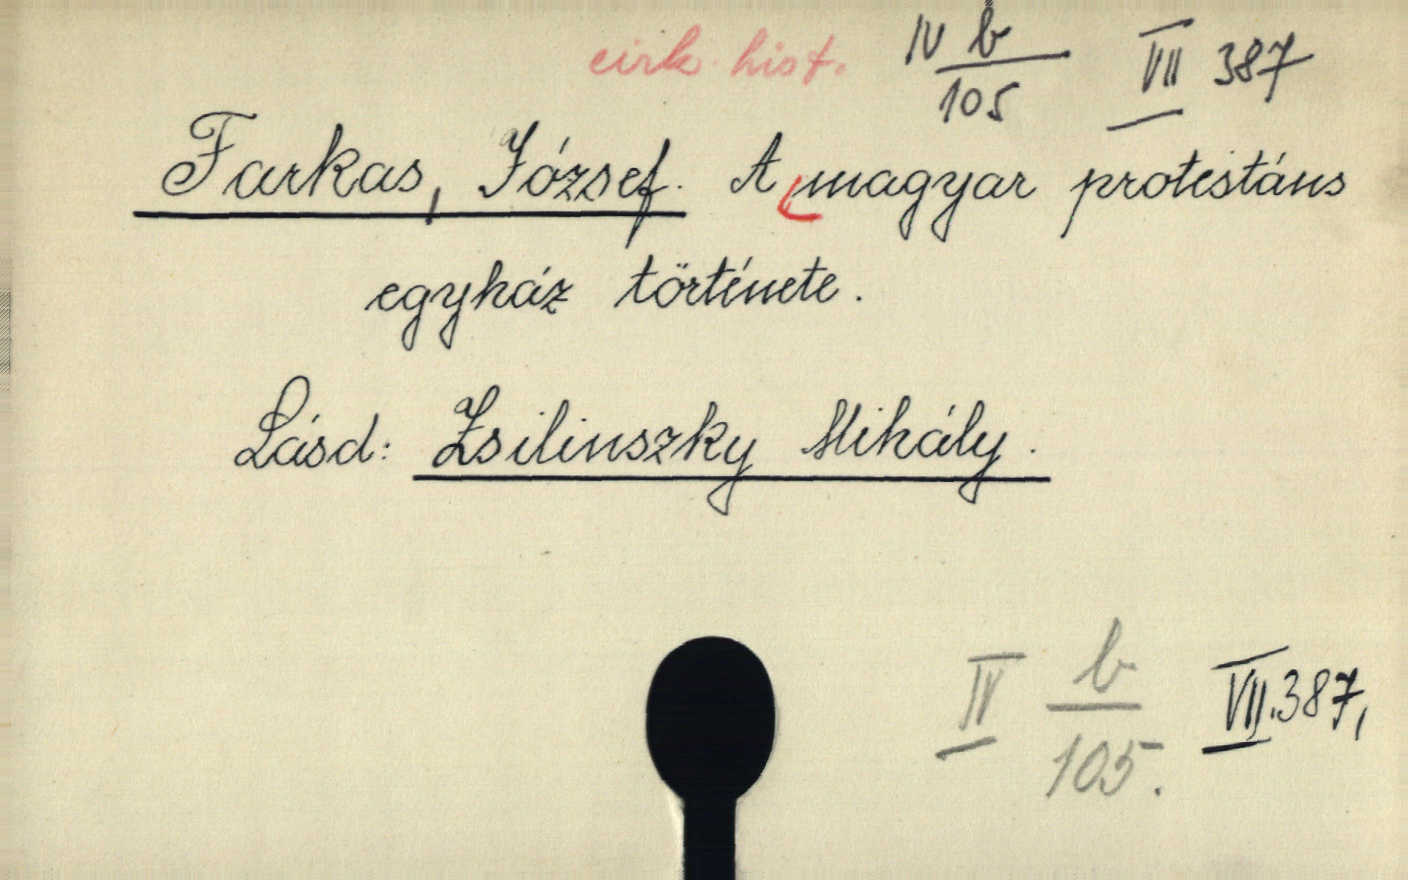 eirk. hist. IV b/105 VII 387
Farkas, József. A magyar protestáns
egyház története.
Lásd: Zsilinszky Mihály.
IV b/105. VII.387,